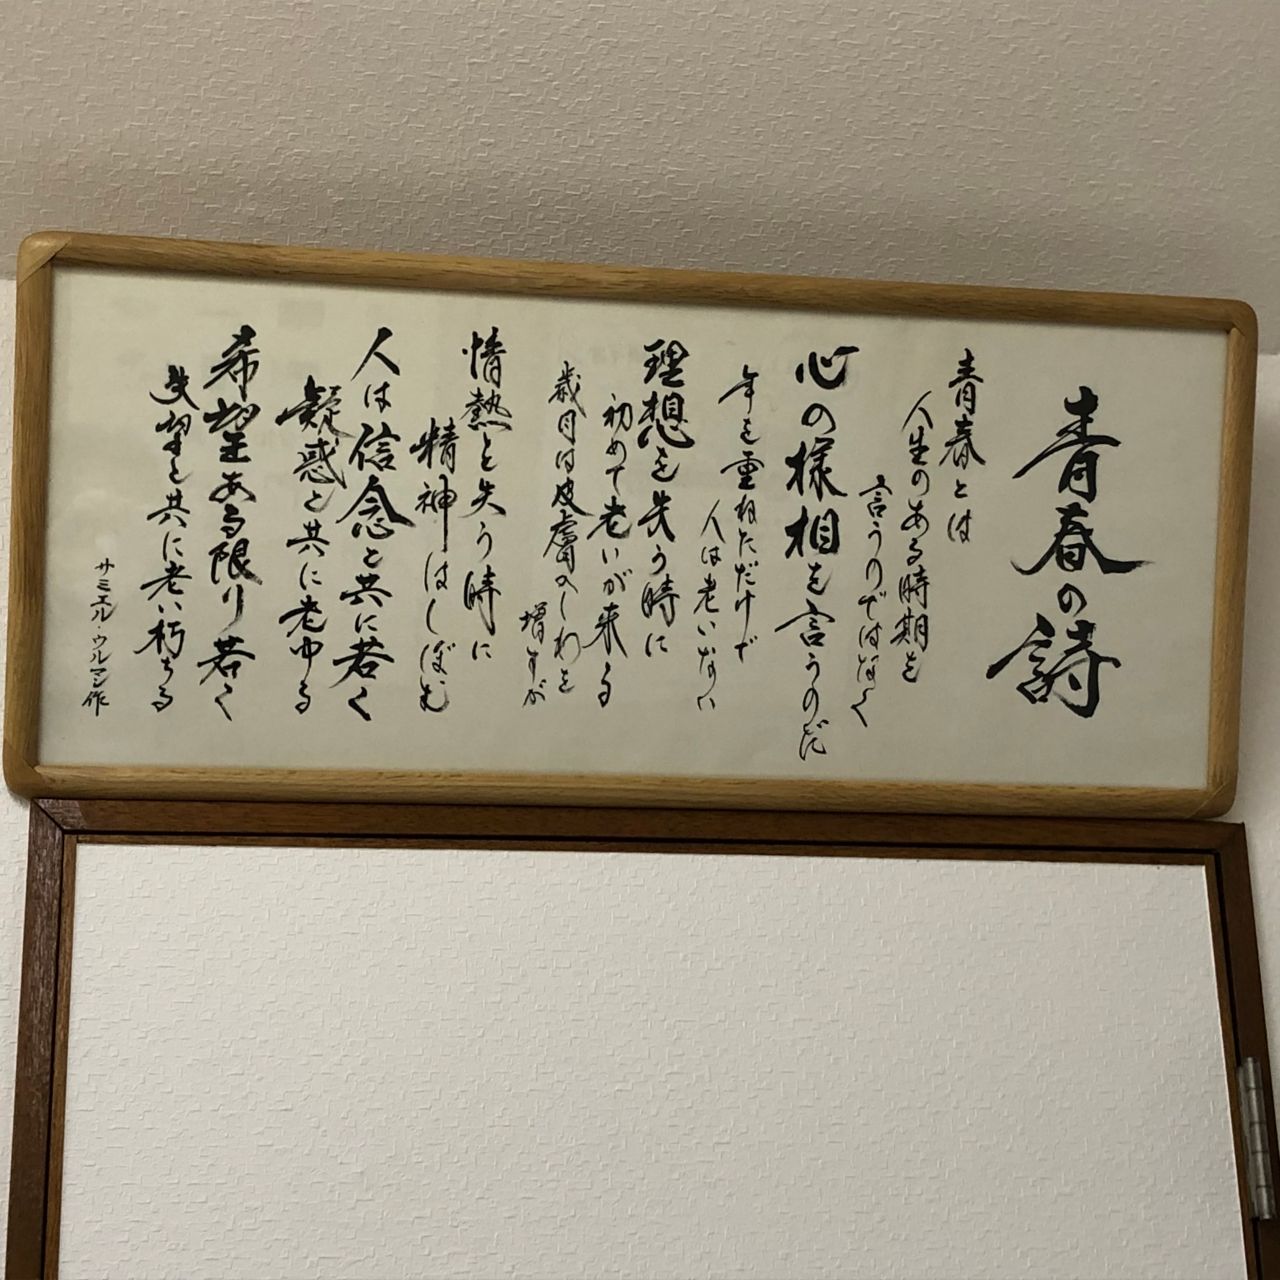 青春の詩
青春とは
人生のある時期を
言うのではなく
心の様相を言うのだ
年を重ねただけで
人は老いない
理想を失う時に
初めて老いが来る
歳月は皮膚のしわを
増すが
情熱を失う時に
精神はしぼむ
人は信念と共に若く
疑惑と共に老ゆる
希望ある限り若く
失望と共に老い朽ちる
サミエル・ウルマン作